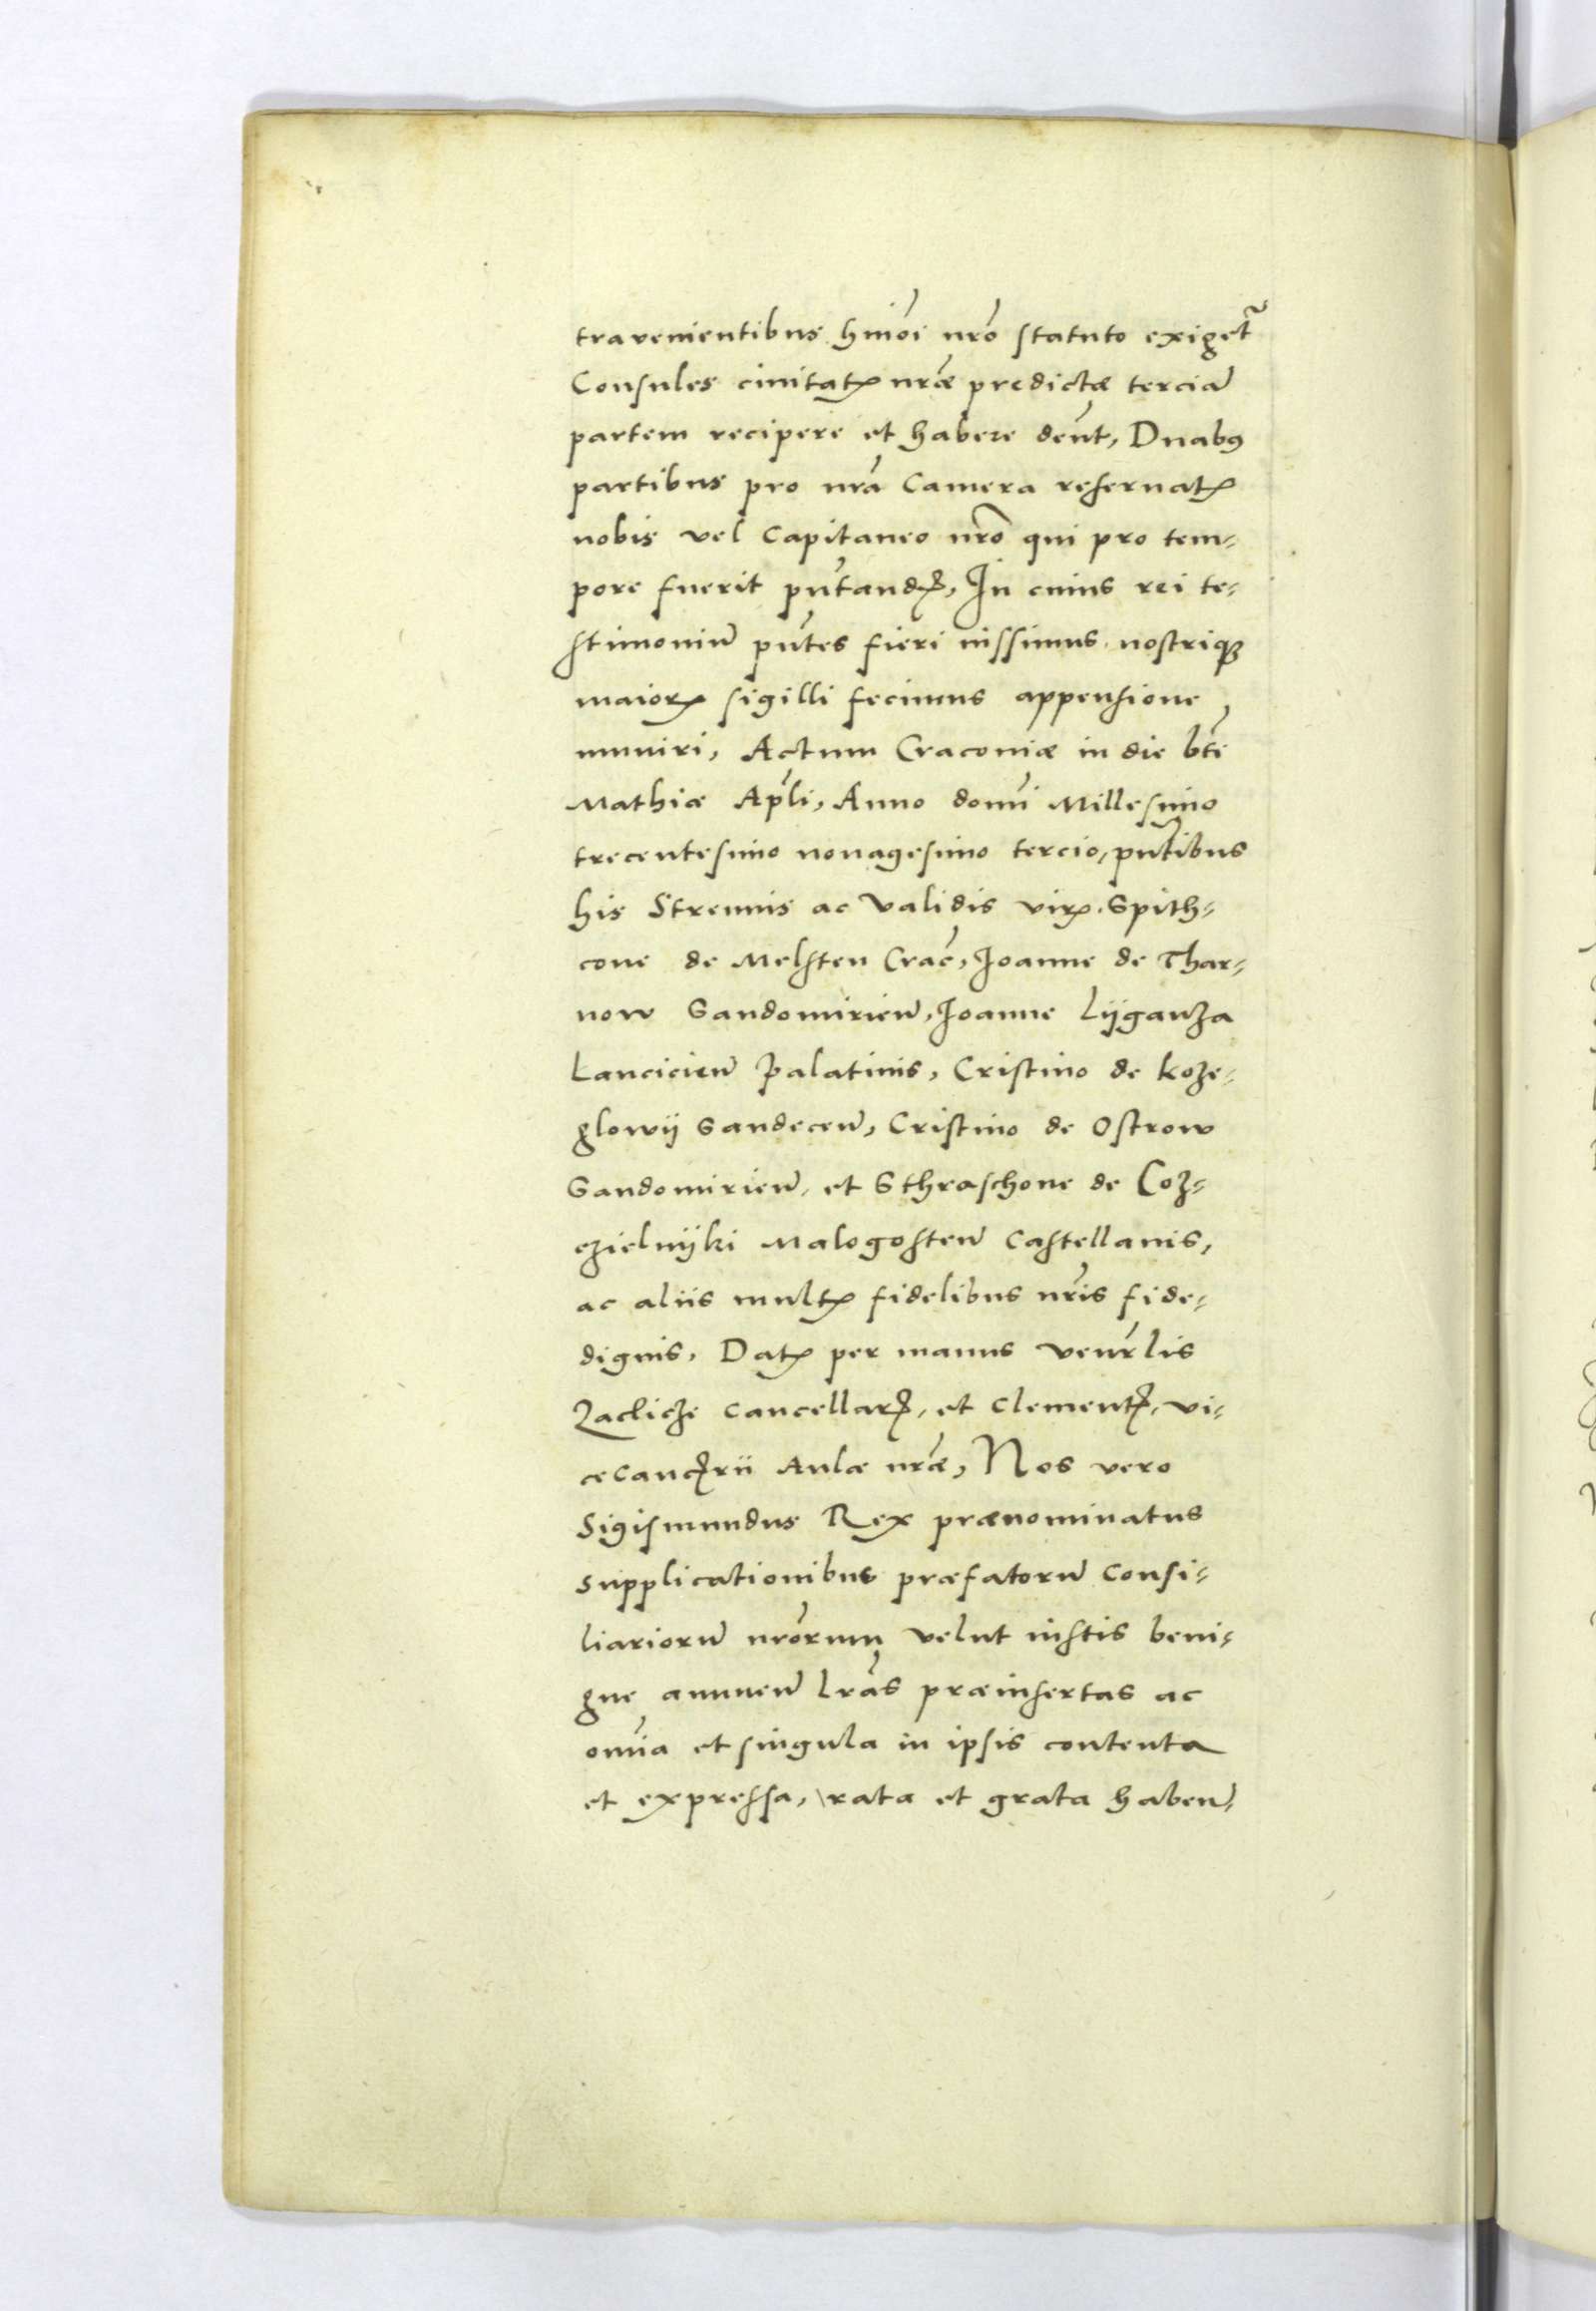 travenientibus hm̄oi nr̄o statuto exiget᷑
Consules ciuitatꝭ nr̄æ predictæ terciā
partem recipere et habere dēnt, Duabꝯ
partibus pro nr̄a Camera reseruatꝭ
nobis vel Capitaneo nr̄o qui pro tem-
pore fuerit pn̄tandꝭ, In cuius rei te-
stimoniū pn̄tes fieri iussimus nostriqꝫ
maiorꝭ sigilli fecimus appensione
muniri, Actum Cracouiæ in die bt̄i
Mathiæ Apl̄i, Anno domī Millesimo
trecentesimo nonagesimo tercio, pn̄tibus
his Strenuis ac Validis virꝭ Spith-
cone de Melsten Crac̄, Joanne de Thar-
now Sandomirieñ, Joanne Lijganza
Lancicieñ Palatinis, Cristino de Koze-
glowij Sandeceñ, Cristino de Ostrow
Sandomirieñ, et Sthraschone de Coz-
ezielnijki Malogosteñ Castellanis,
ac aliis multꝭ fidelibus nr̄is fide-
dignis, Datꝭ per manus venr̄lis
Zaclicze Cancellarꝭ, et Clementꝭ, vi-
ceCancꝭrii Aulæ nr̄æ, Nos vero
Sigismundus Rex prænominatus
supplicationibus præfatorū Consi-
liariorū nr̄orum velut iustis beni-
gne annueñ lr̄as præinsertas ac
omīa et singula in ipsis contenta
et expressa, rata et grata habeñ,